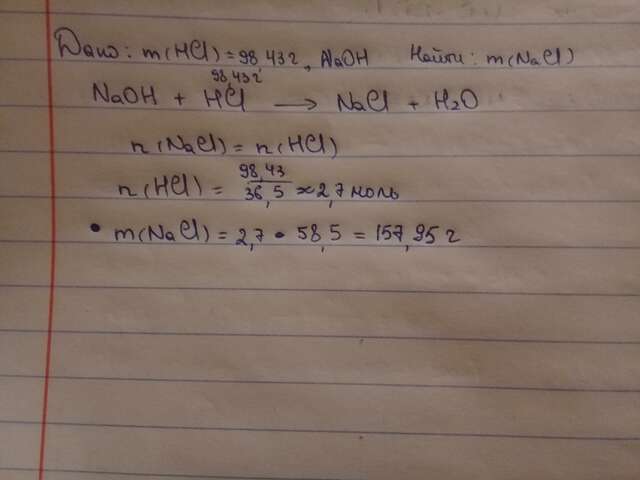 Дано: m(HCl) = 98,43 г, NaOH Найти: m(NaCl)
98,43 г
NaOH + HCl → NaCl + H₂O
n(NaCl) = n(HCl)
n(HCl) = 98,43 / 36,5 ≈ 2,7 моль
• m(NaCl) = 2,7 • 58,5 = 157,95 г